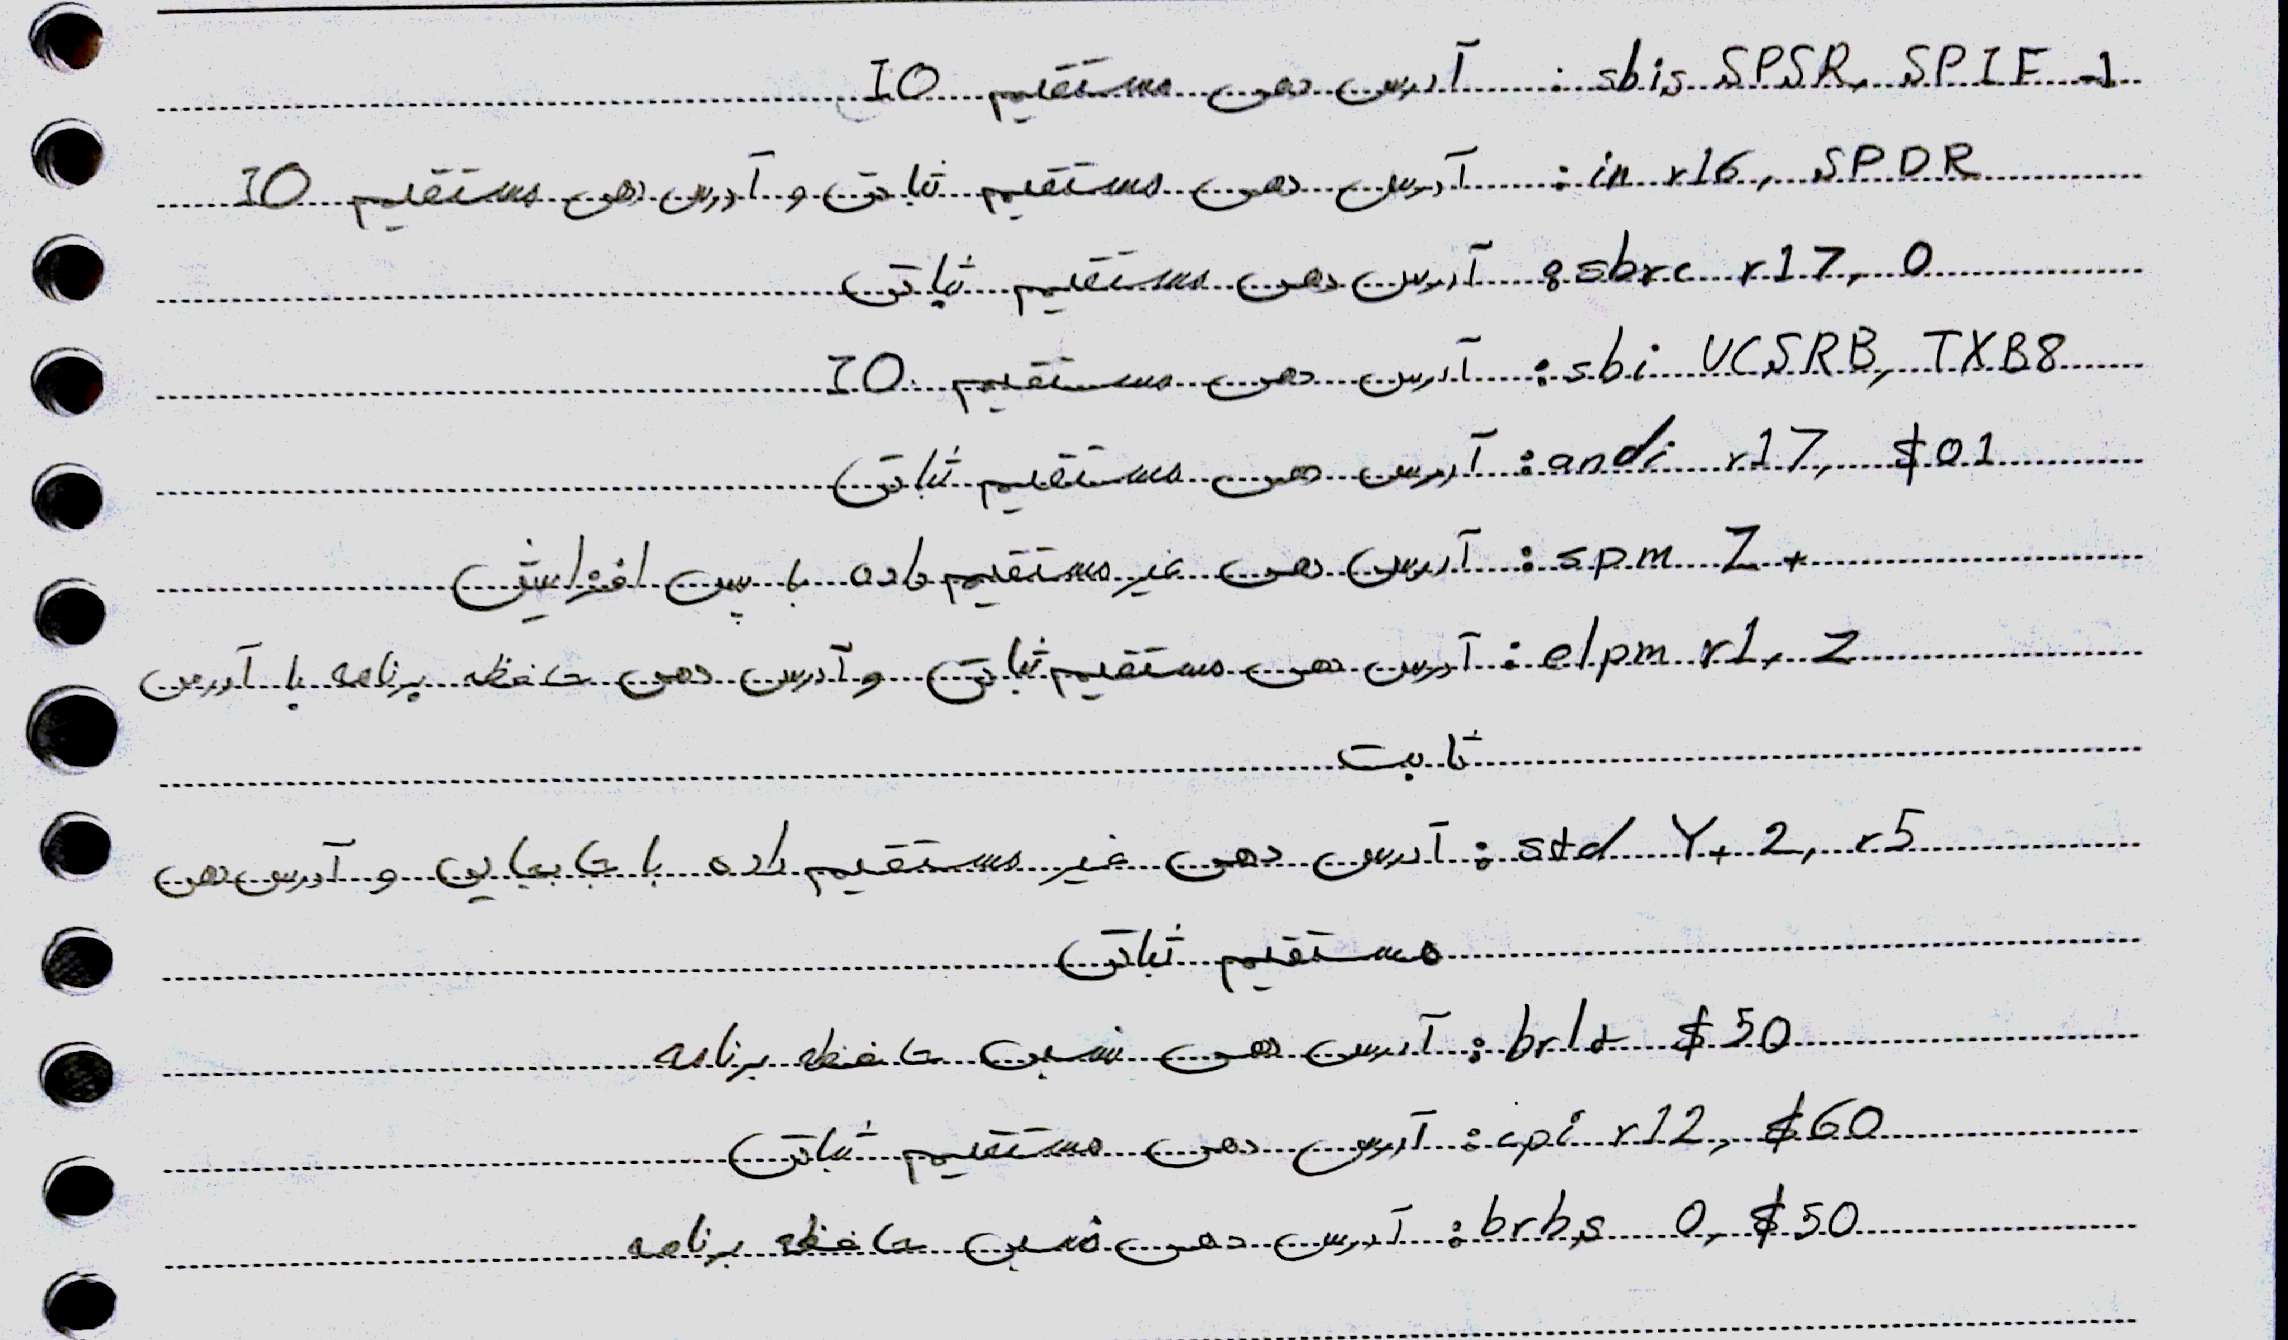 1- sbis SPSR, SPIF : آدرس دهی مستقیم IO
in r16, SPDR : آدرس دهی مستقیم ثباتی و آدرس دهی مستقیم IO
sbrc r17, 0 : آدرس دهی مستقیم ثباتی
sbi UCSRB, TXB8 : آدرس دهی مستقیم IO
andi r17, $01 : آدرس دهی مستقیم ثباتی
spm Z+ : آدرس دهی غیر مستقیم داده با پس افزایش
elpm r1, Z : آدرس دهی مستقیم ثباتی و آدرس دهی حافظه برنامه با آدرس
ثابت
std Y+2, r5 : آدرس دهی غیر مستقیم داده با جابجایی و آدرس دهی
مستقیم ثباتی
brlt $50 : آدرس دهی نسبی حافظه برنامه
cpi r12, $60 : آدرس دهی مستقیم ثباتی
brbs 0, $50 : آدرس دهی نسبی حافظه برنامه